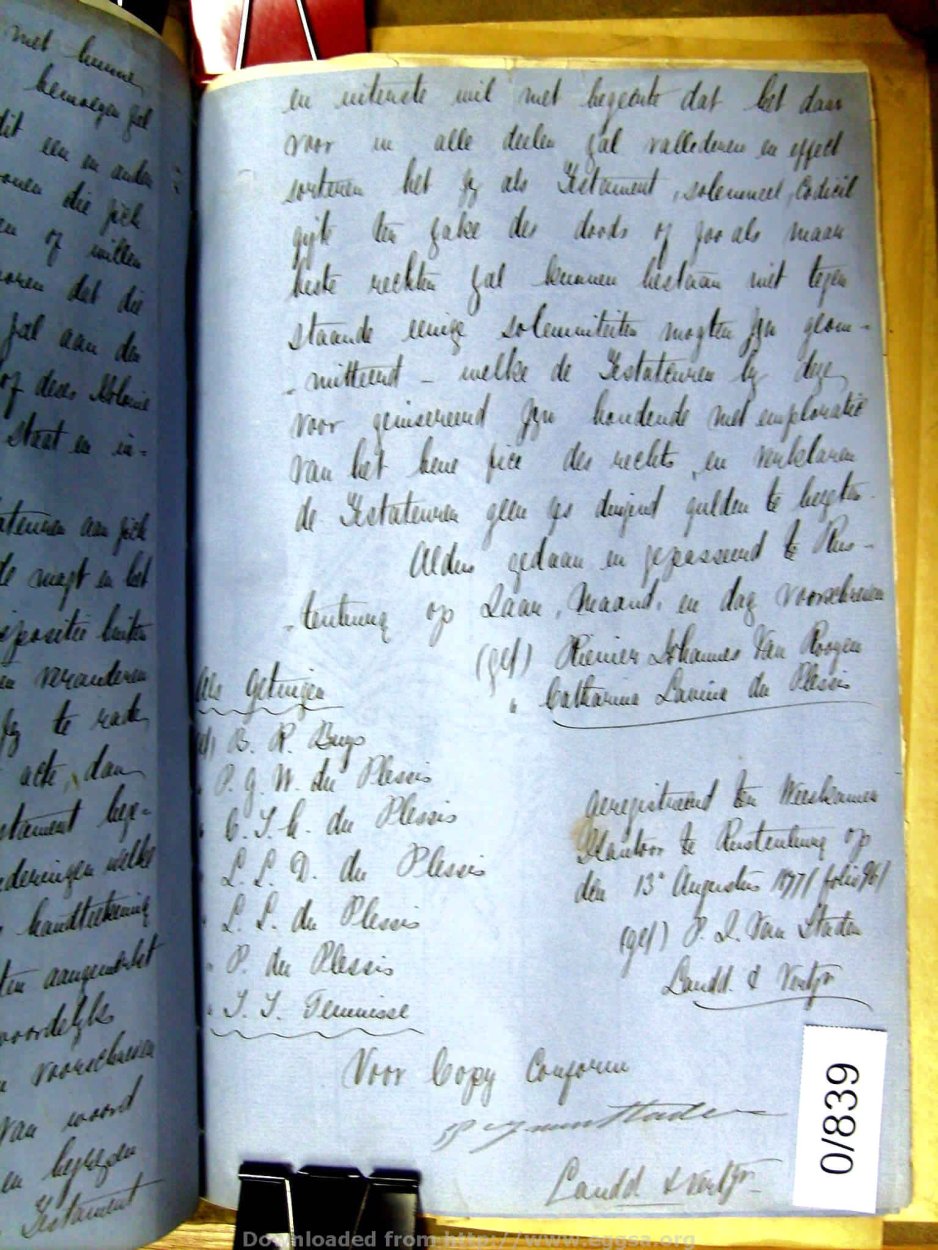 met hunne
bemoegen zal
dit een en ander
die zich
of willen
dat die
zal aan den
of dezer Kolonie
Staat en in-
aan zich
magt en het
buiten
en veranderen
te rade
acte, dan
welke
handteekening
voorschreven
van woord
en
Testament
en uiterste wil met begeerte dat het daar
voor in alle deelen zal vallederen en effect
sorteren het zy als Testament, solemneel, Codicil
gift ten zake des doods of zoo als maar
beste rechten zal kunnen bestaan niet tegen
staande eenige solemniteiten mogten zyn geom-
-mitteerd - welke de Testateuren by deze
voor geinsereerd zyn houdende met emploratie
van het bene fice des rechts, en verklaren
de Testateuren geen es duizend gulden te bezitten.
Aldus gedaan en gepasseerd te Rus-
-tenburg op Jaar, Maand, en dag voorschreven
(get) Rienier Johannes Van Rooyen
" Catharina Lavina du Plessis
Als Getuigen
B. R. Buys
P. G. W. du Plessis
C. J. H. du Plessis
L. L. D. du Plessis
L. L. du Plessis
" P. du Plessis
" J. J. Teunisse
Geregistreerd ten Weeskamer
Kantoor te Rustenburg op
den 13e Augustus 1877 / folio 96/
(get) P. J. Van Staden
Landd. & Vertgr
Voor Copy Conform
P J van Staden
Landd & vertgr
0/839
Downloaded from http://www.eggsa.org